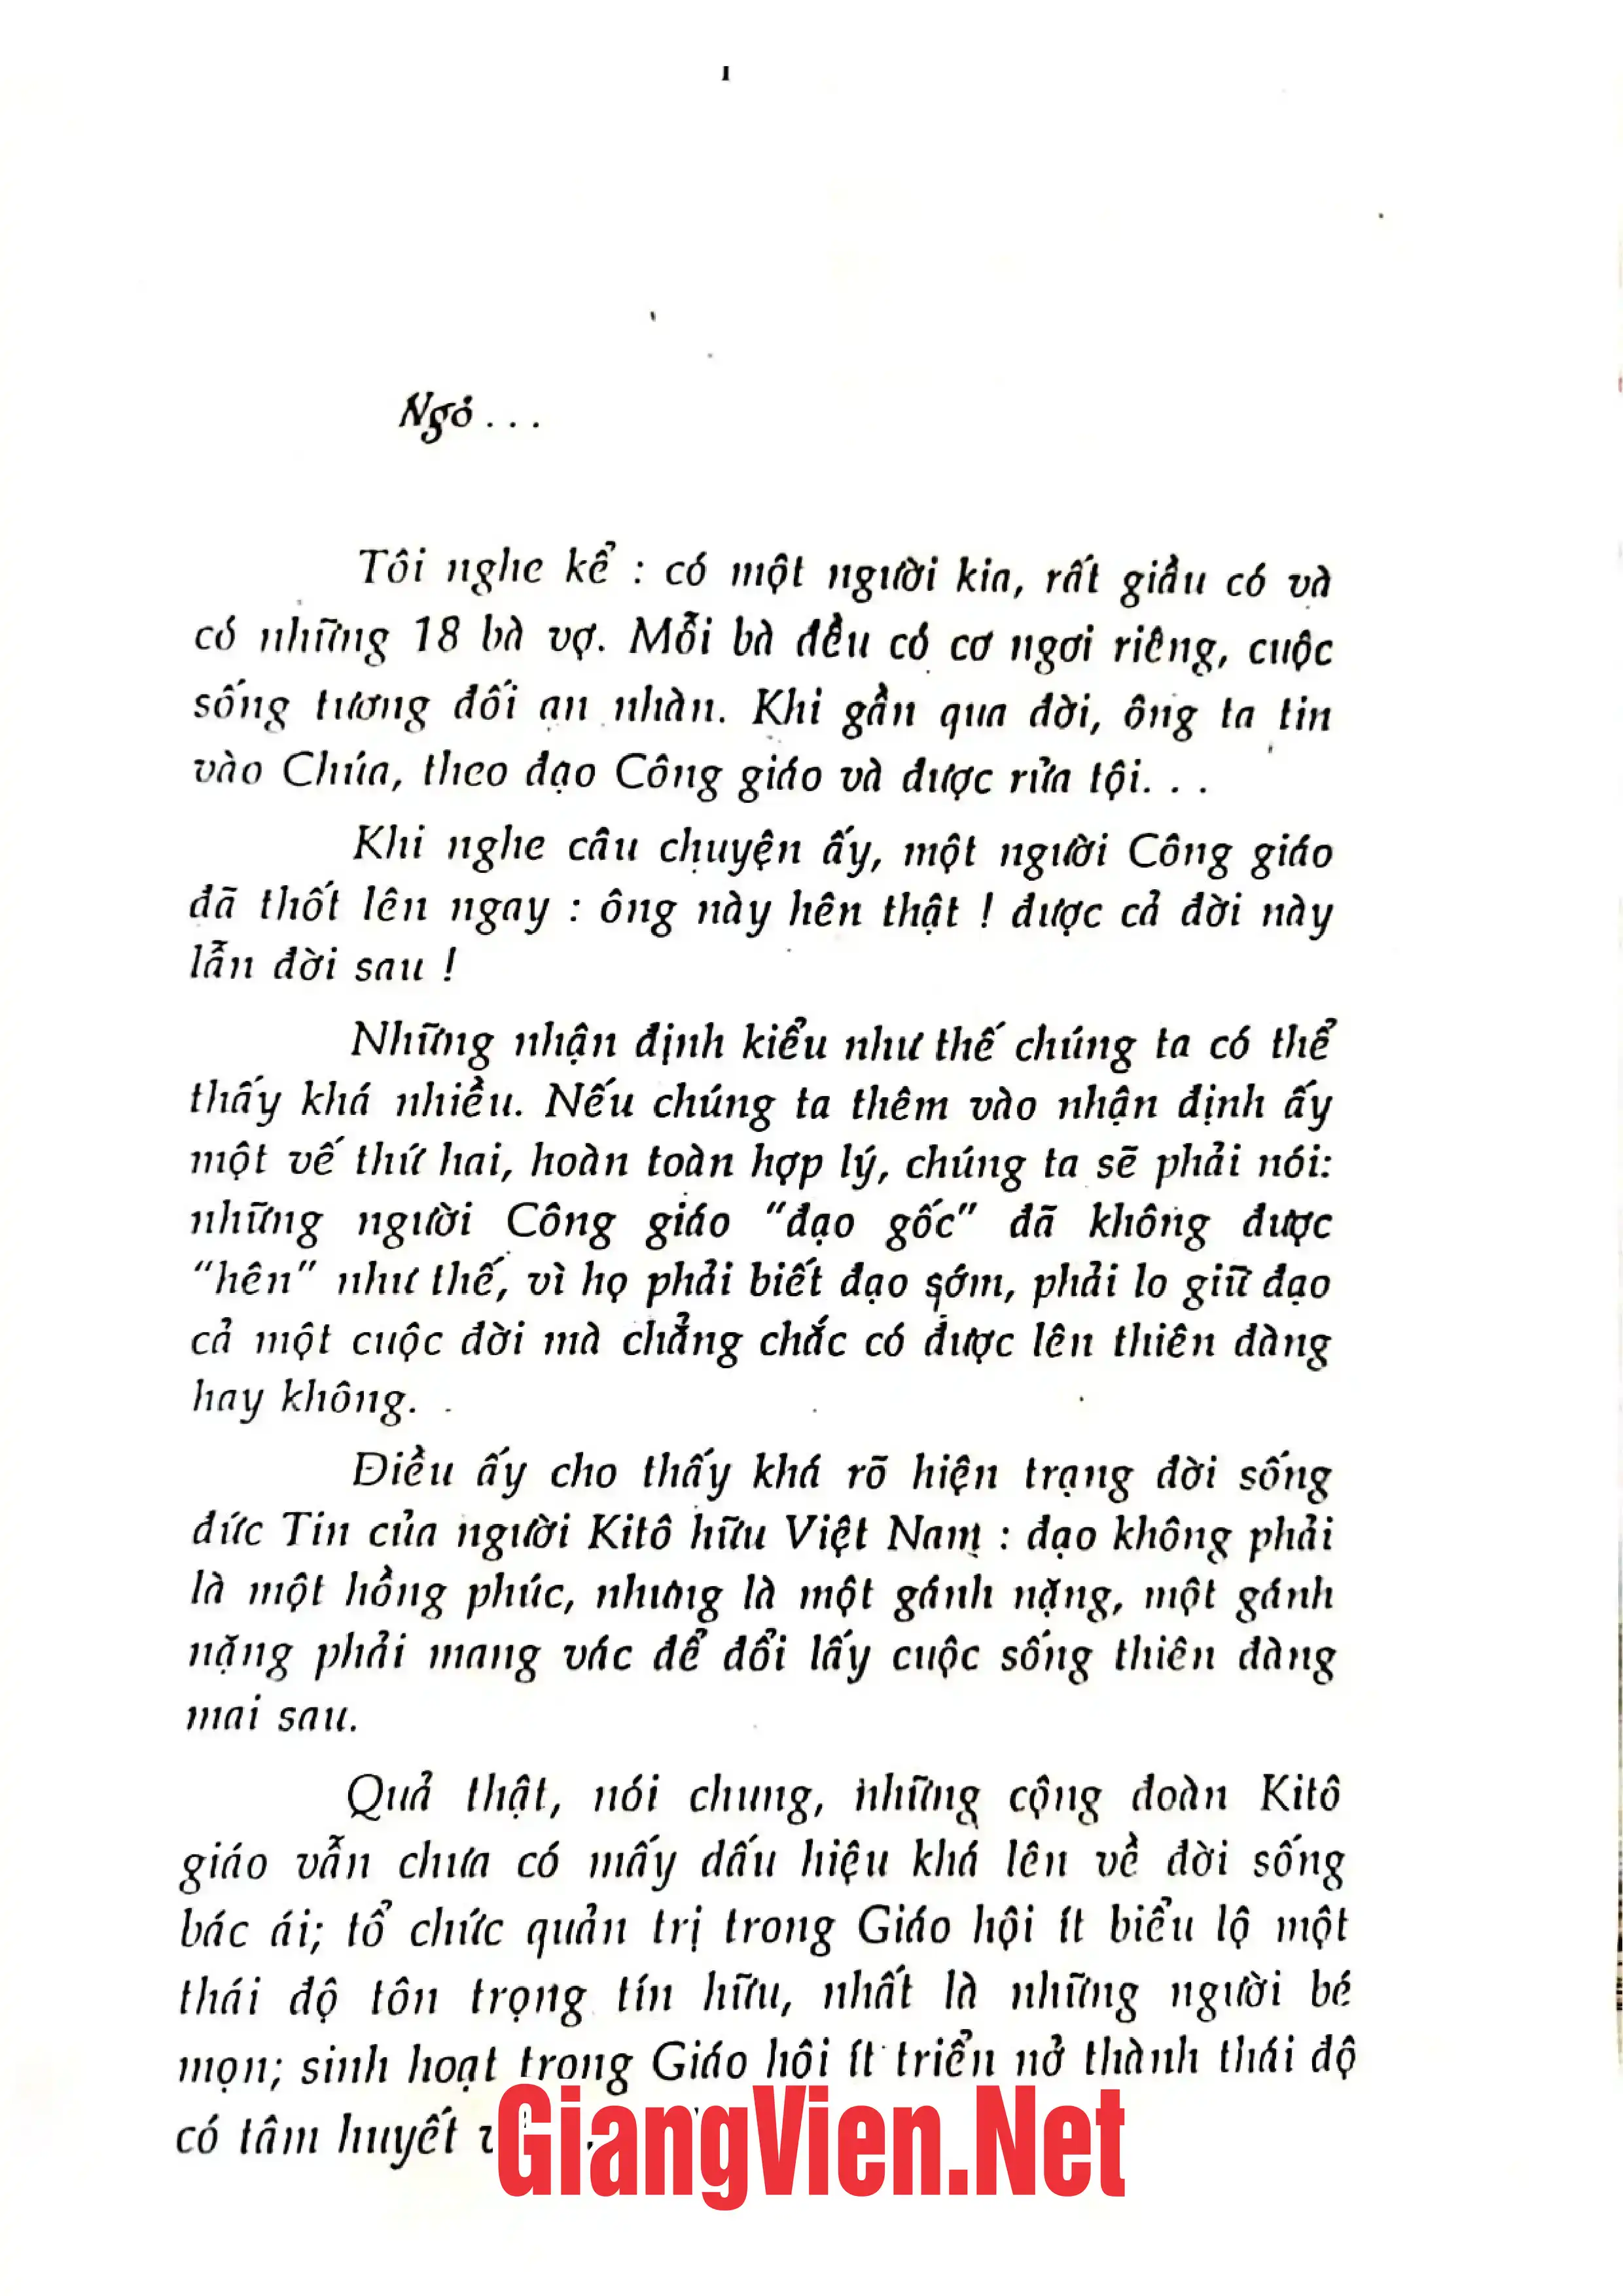 I
Ngỏ . . .
Tôi nghe kể : có một người kia, rất giầu có và
có những 18 bà vợ. Mỗi bà đều có cơ ngơi riêng, cuộc
sống tương đối an nhàn. Khi gần qua đời, ông ta tin
vào Chúa, theo đạo Công giáo và được rửa tội. . .
Khi nghe câu chuyện ấy, một người Công giáo
đã thốt lên ngay : ông này hên thật ! được cả đời này
lẫn đời sau !
Những nhận định kiểu như thế chúng ta có thể
thấy khá nhiều. Nếu chúng ta thêm vào nhận định ấy
một vế thứ hai, hoàn toàn hợp lý, chúng ta sẽ phải nói:
những người Công giáo "đạo gốc" đã không được
"hên" như thế, vì họ phải biết đạo sớm, phải lo giữ đạo
cả một cuộc đời mà chẳng chắc có được lên thiên đàng
hay không.
Điều ấy cho thấy khá rõ hiện trạng đời sống
đức Tin của người Kitô hữu Việt Nam : đạo không phải
là một hồng phúc, nhưng là một gánh nặng, một gánh
nặng phải mang vác để đổi lấy cuộc sống thiên đàng
mai sau.
Quả thật, nói chung, những cộng đoàn Kitô
giáo vẫn chưa có mấy dấu hiệu khá lên về đời sống
bác ái; tổ chức quản trị trong Giáo hội ít biểu lộ một
thái độ tôn trọng tín hữu, nhất là những người bé
mọn; sinh hoạt trong Giáo hội ít triển nở thành thái độ
có tâm huyết
GiangVien.Net